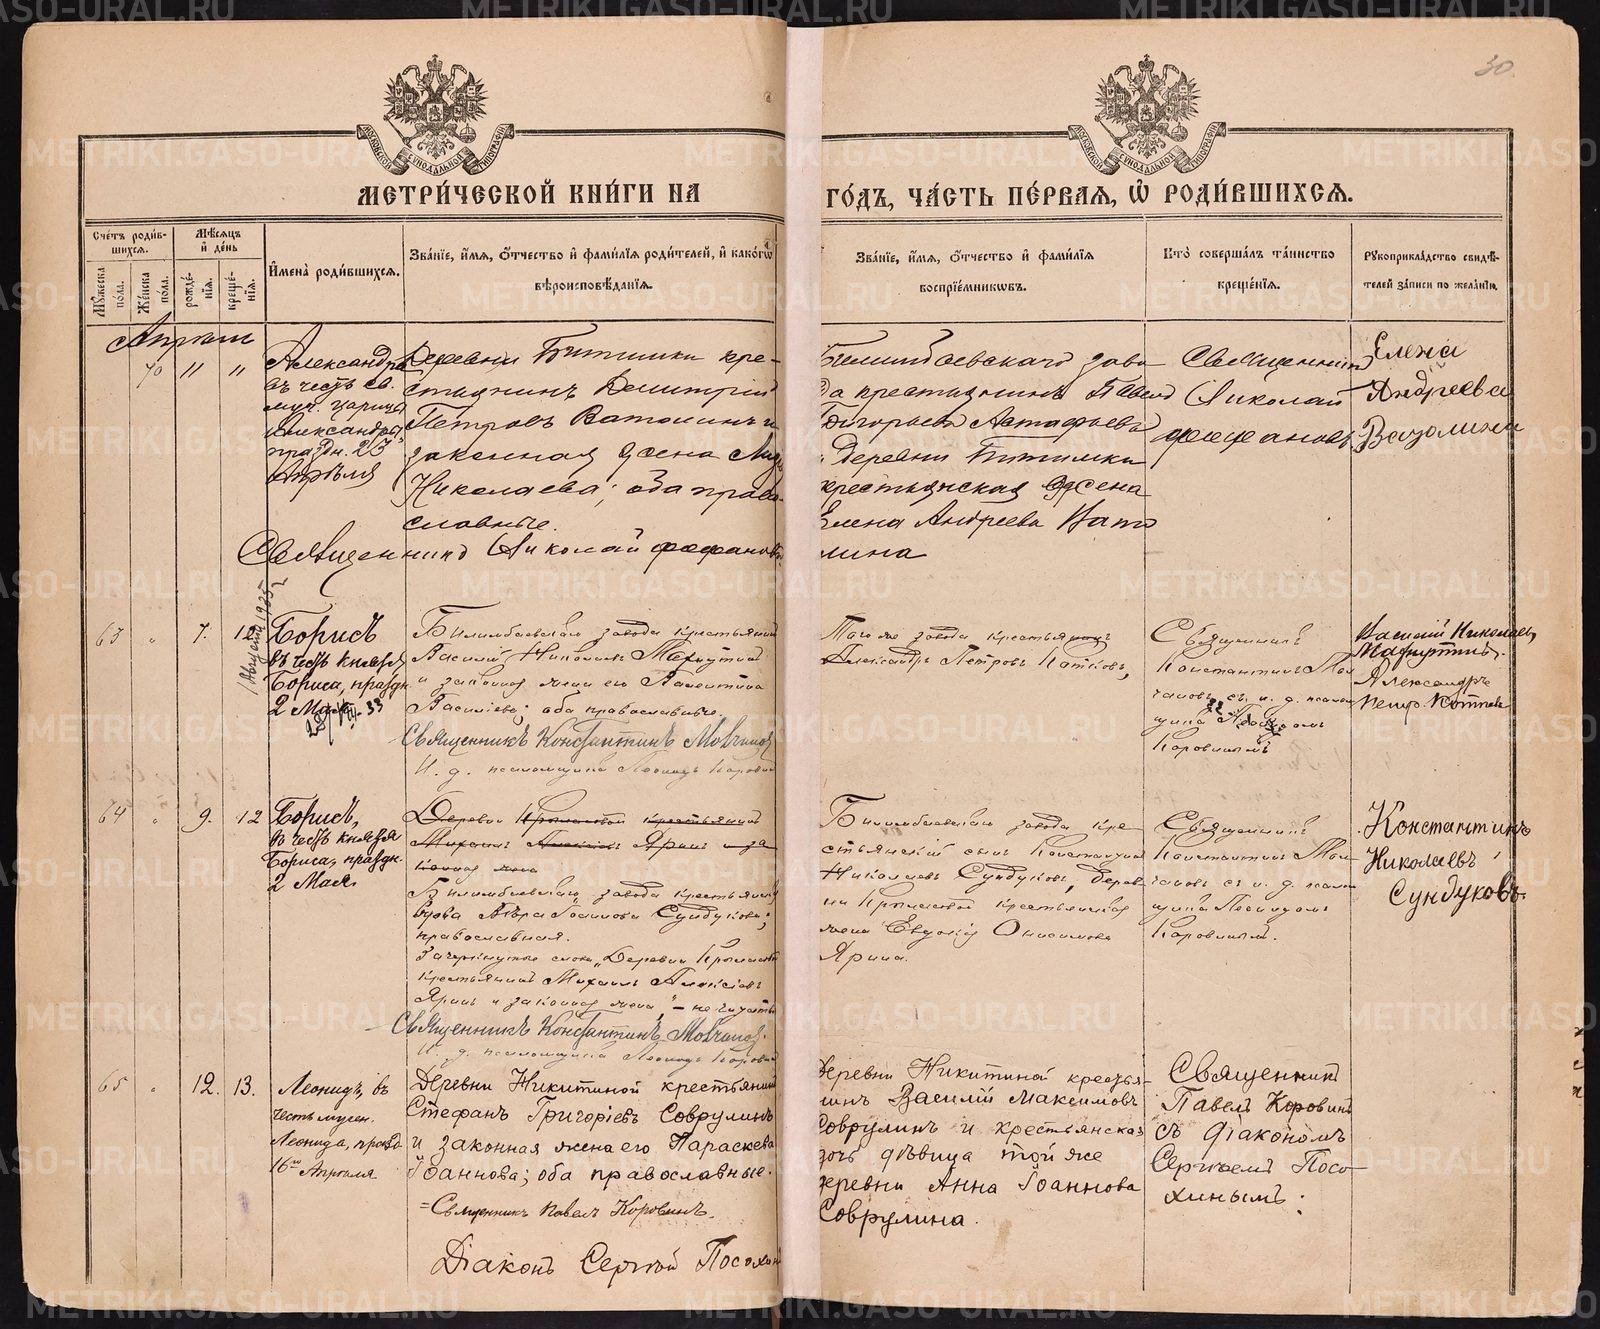 30.
МЕТРИ́ЧЕСКОЙ КНИ́ГИ НА ГО́ДЪ, ЧА́СТЬ ПЕ́РВАЯ, Ѡ҆ РОДИ́ВШИХСЯ.
МОСКОВСКОЙ СѴНОДАЛЬНОЙ ТИПОГРАФІИ
МОСКОВСКОЙ СѴНОДАЛЬНОЙ ТИПОГРАФІИ
Сче́тъ роди́вшихся.
Мꙋ́жеска по́ла.
Же́нска по́ла.
Мѣ́сяцъ и҆ де́нь
рожде́нїя.
креще́нїя.
И҆мена̀ роди́вшихся.
Зва́нїе, и҆́мя, ѻ҆́тчество и҆ фами́лїя роди́телей, и҆ како́гѡ
вѣроисповѣ́данїя.
Зва́нїе, и҆́мя, ѻ҆́тчество и҆ фами́лїя
воспрїе́мникѡвъ.
Кто̀ соверша́лъ та́инство
креще́нїя.
Рꙋкоприкла́дство свидѣ́телей за́писи по жела́нїю.
Апрѣль
70 11 "
Александра
въ честь св.
муч. царицы
Александры,
праздн. 23
Апрѣля
Деревни Битимки кре-
стьянинъ Димитрій
Петровъ Ватолинъ и
законная жена
Николаева; оба право-
славные.
Священникъ Николай Фефановъ.
Билимбаевскаго заво
да крестьянинъ Павелъ
Григорьевъ Астафьевъ
и Деревни Битимки
крестьянская жена
Елена Андреева Вато
лина
Священникъ
Николай
Фефановъ
Елена
Андреева
Ватолина
1 Августа 1925 г.
63 " 7. 12
Борисъ
въ честь князя
Бориса, праздн.
2 Мая
Билимбаевскаго завода крестьянинъ
Василій Николаевъ Махнутинъ
и законная жена его Валентина
Васильева; оба православные.
Священникъ Константинъ Молчановъ
И. д. псаломщика Леонидъ Коровинъ
Того же завода крестьянинъ
Александръ Петровъ Котковъ,
Священникъ
Константинъ Мол
чановъ съ и. д. псалом
щика Леонидомъ
Коровинымъ
Василій Николаевъ
Александръ
Петр. Котковъ
64 " 9. 12
Борисъ,
въ честь князя
Бориса, праздн.
2 Мая.
Деревни Крыласовой крестьянинъ
Михаилъ Алексіевъ Яринъ и за
конная жена
Билимбаевскаго завода крестьянская
вдова Сундукова;
православная.
Зачеркнутыя слова „Деревни Крыласовой
крестьянинъ Михаилъ Алексіевъ
Яринъ и законная жена," – не читать
Священникъ Константинъ Молчановъ.
И. д. псаломщика Леонидъ Коровинъ
Билимбаевскаго завода кре-
стьянскій сынъ Константинъ
Николаевъ Сундуковъ, Дерев
ни Крыласовой крестьянская
жена Евдокія Онисимова
Ярина.
Священникъ
Константинъ Мол-
чановъ съ и. д. псалом
щика Леонидомъ
Коровинымъ.
Константинъ
Николаевъ
Сундуковъ.
65 " 12. 13.
Леонидъ, въ
честь мучен.
Леонида, празд.
16го Апрѣля
Деревни Никитиной крестьянинъ
Стефанъ Григоріевъ Соврулинъ
и законная жена его Параскева
Іоаннова; оба православные.
Священникъ Павелъ Коровинъ.
Діаконъ Сергій Посохинъ
Деревни Никитиной крестья-
нинъ Василій Максимовъ
Соврулинъ и крестьянская
дочь дѣвица той же
деревни Анна Іоаннова
Соврулина.
Священникъ
Павелъ Коровинъ
съ діакономъ
Сергіемъ Посо-
хинымъ.
METRIKI.GASO-URAL.RU